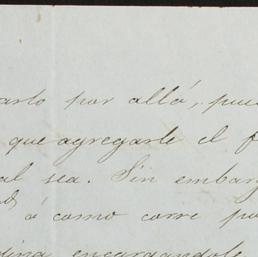 arlo por allá, pue
que agregarle el f
al sea. Sin embarg
ó como corre po
dina encargandole